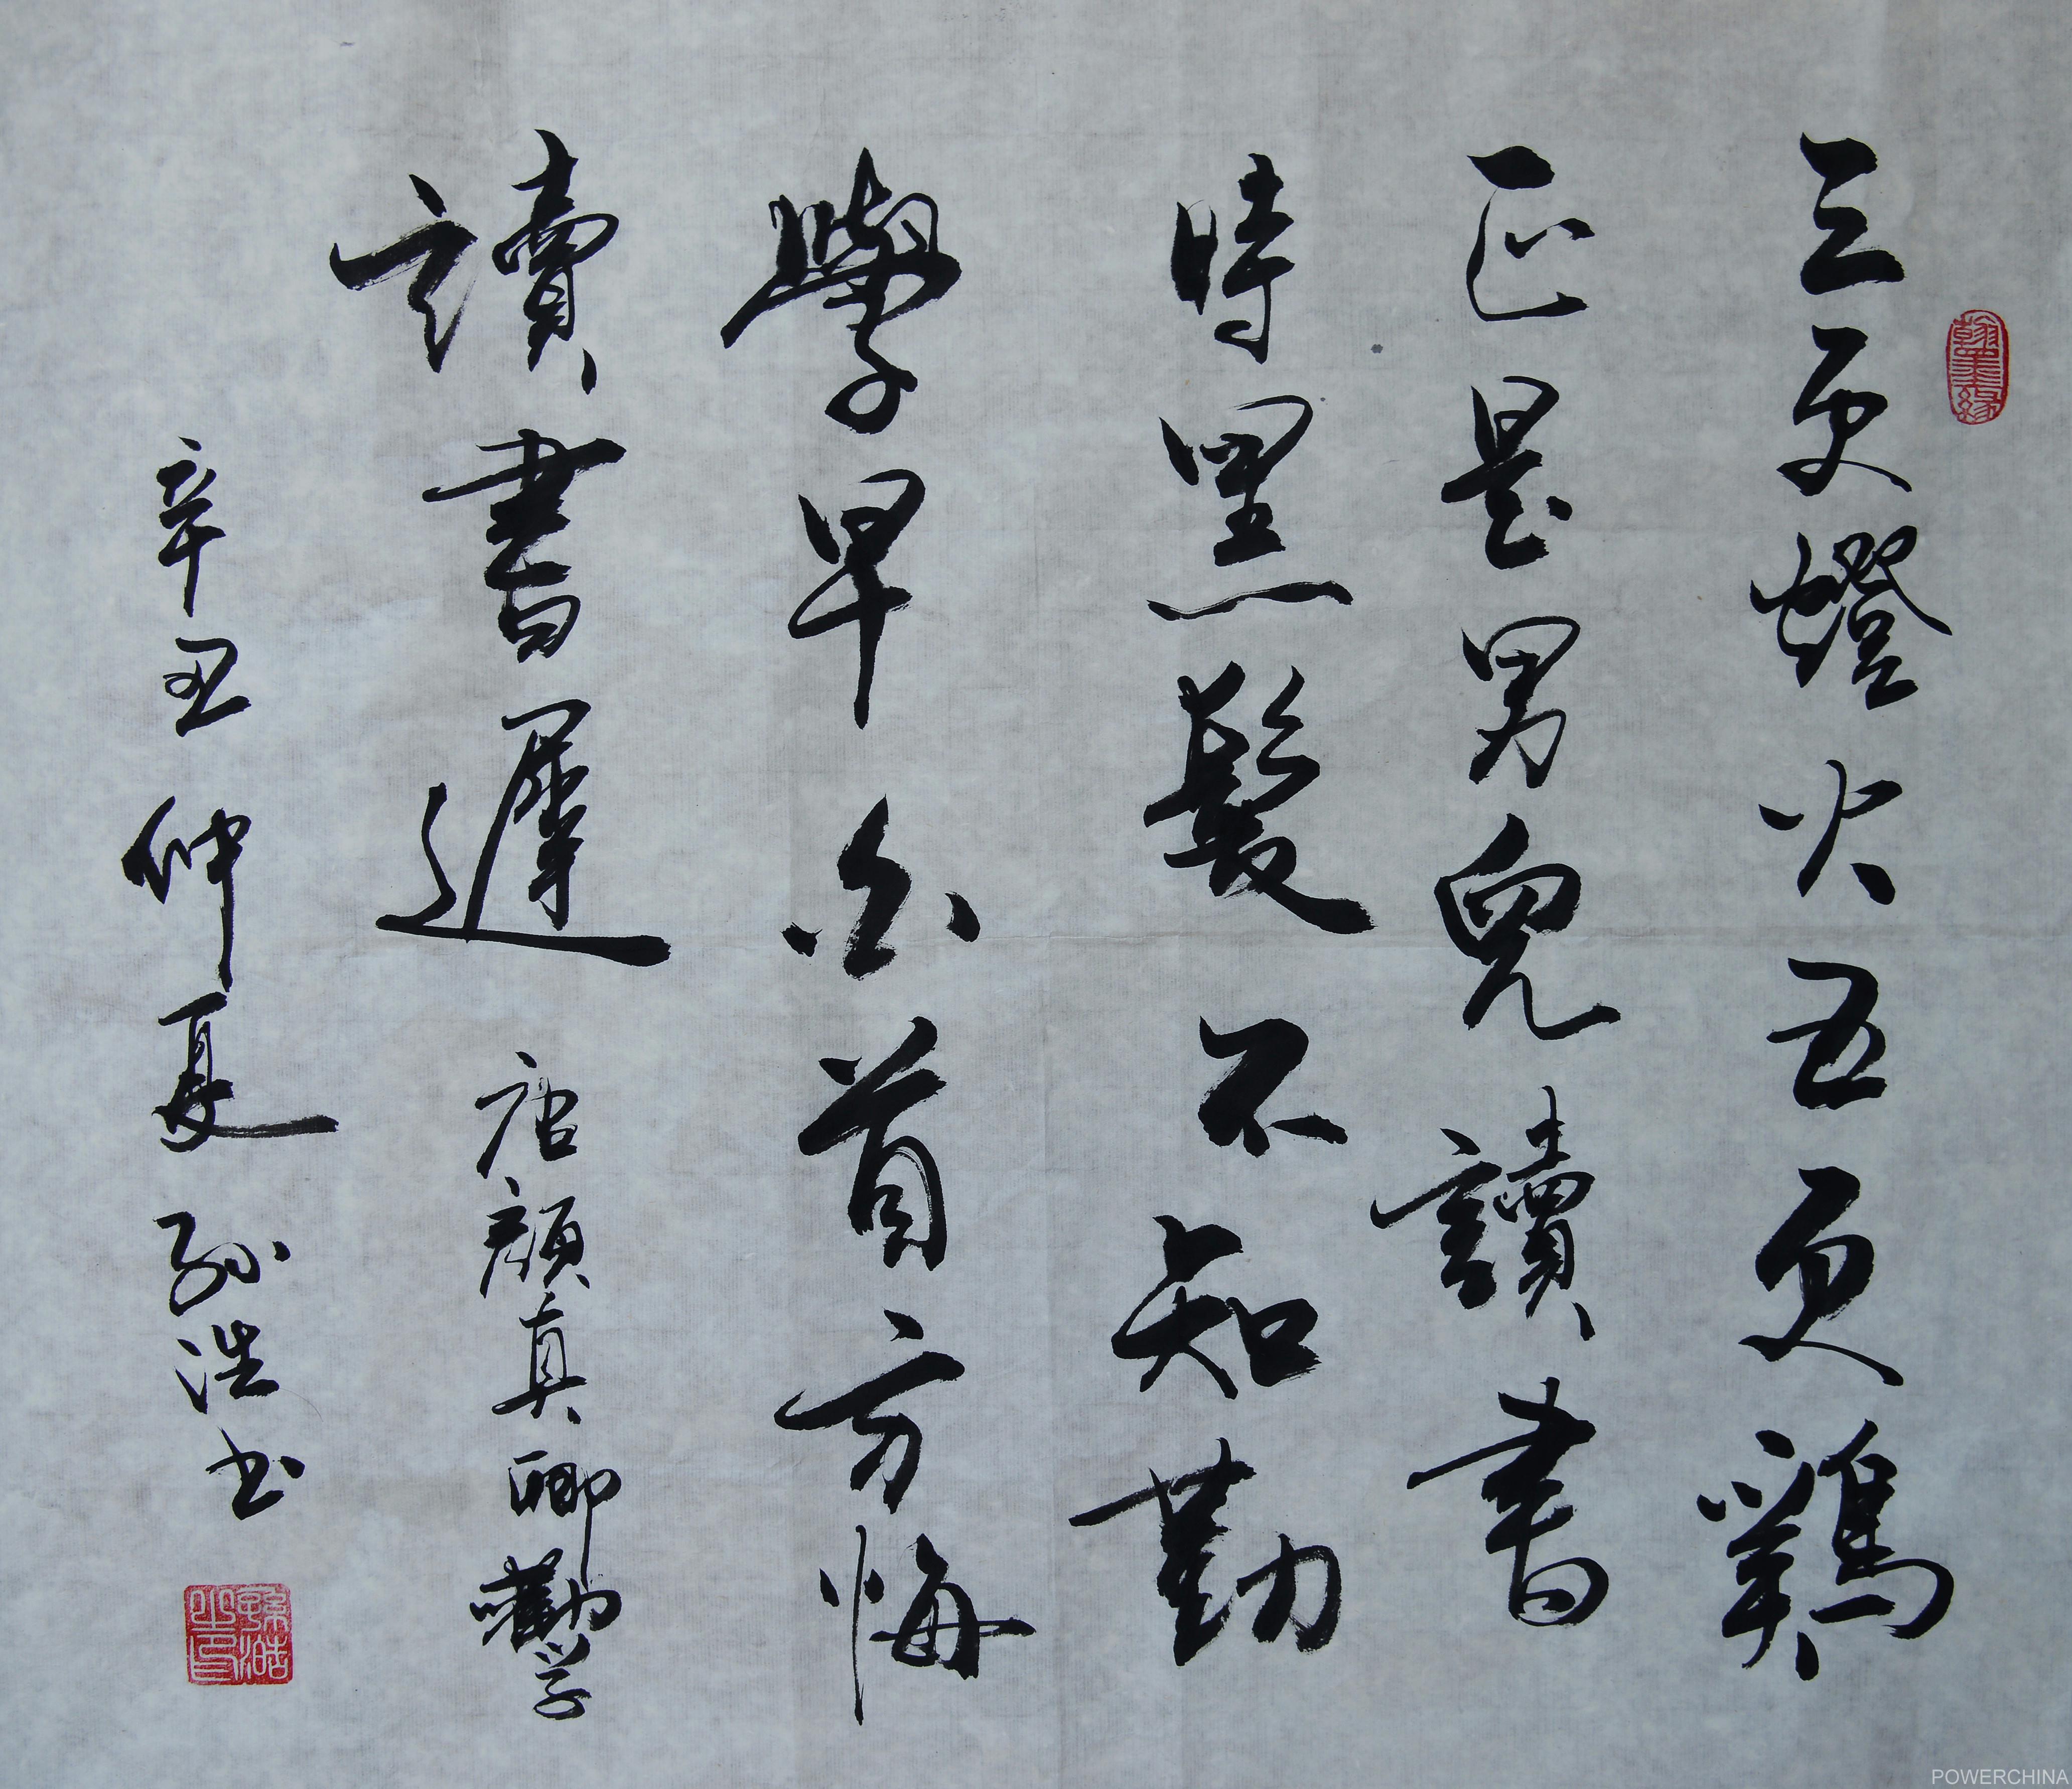 三更燈火五更鷄
正是男兒讀書
時黑髮不知勤
學早白首方悔
讀書遲 唐顔真卿勸学
辛丑仲夏孙浩书
翰墨缘
孫浩之印
POWERCHINA